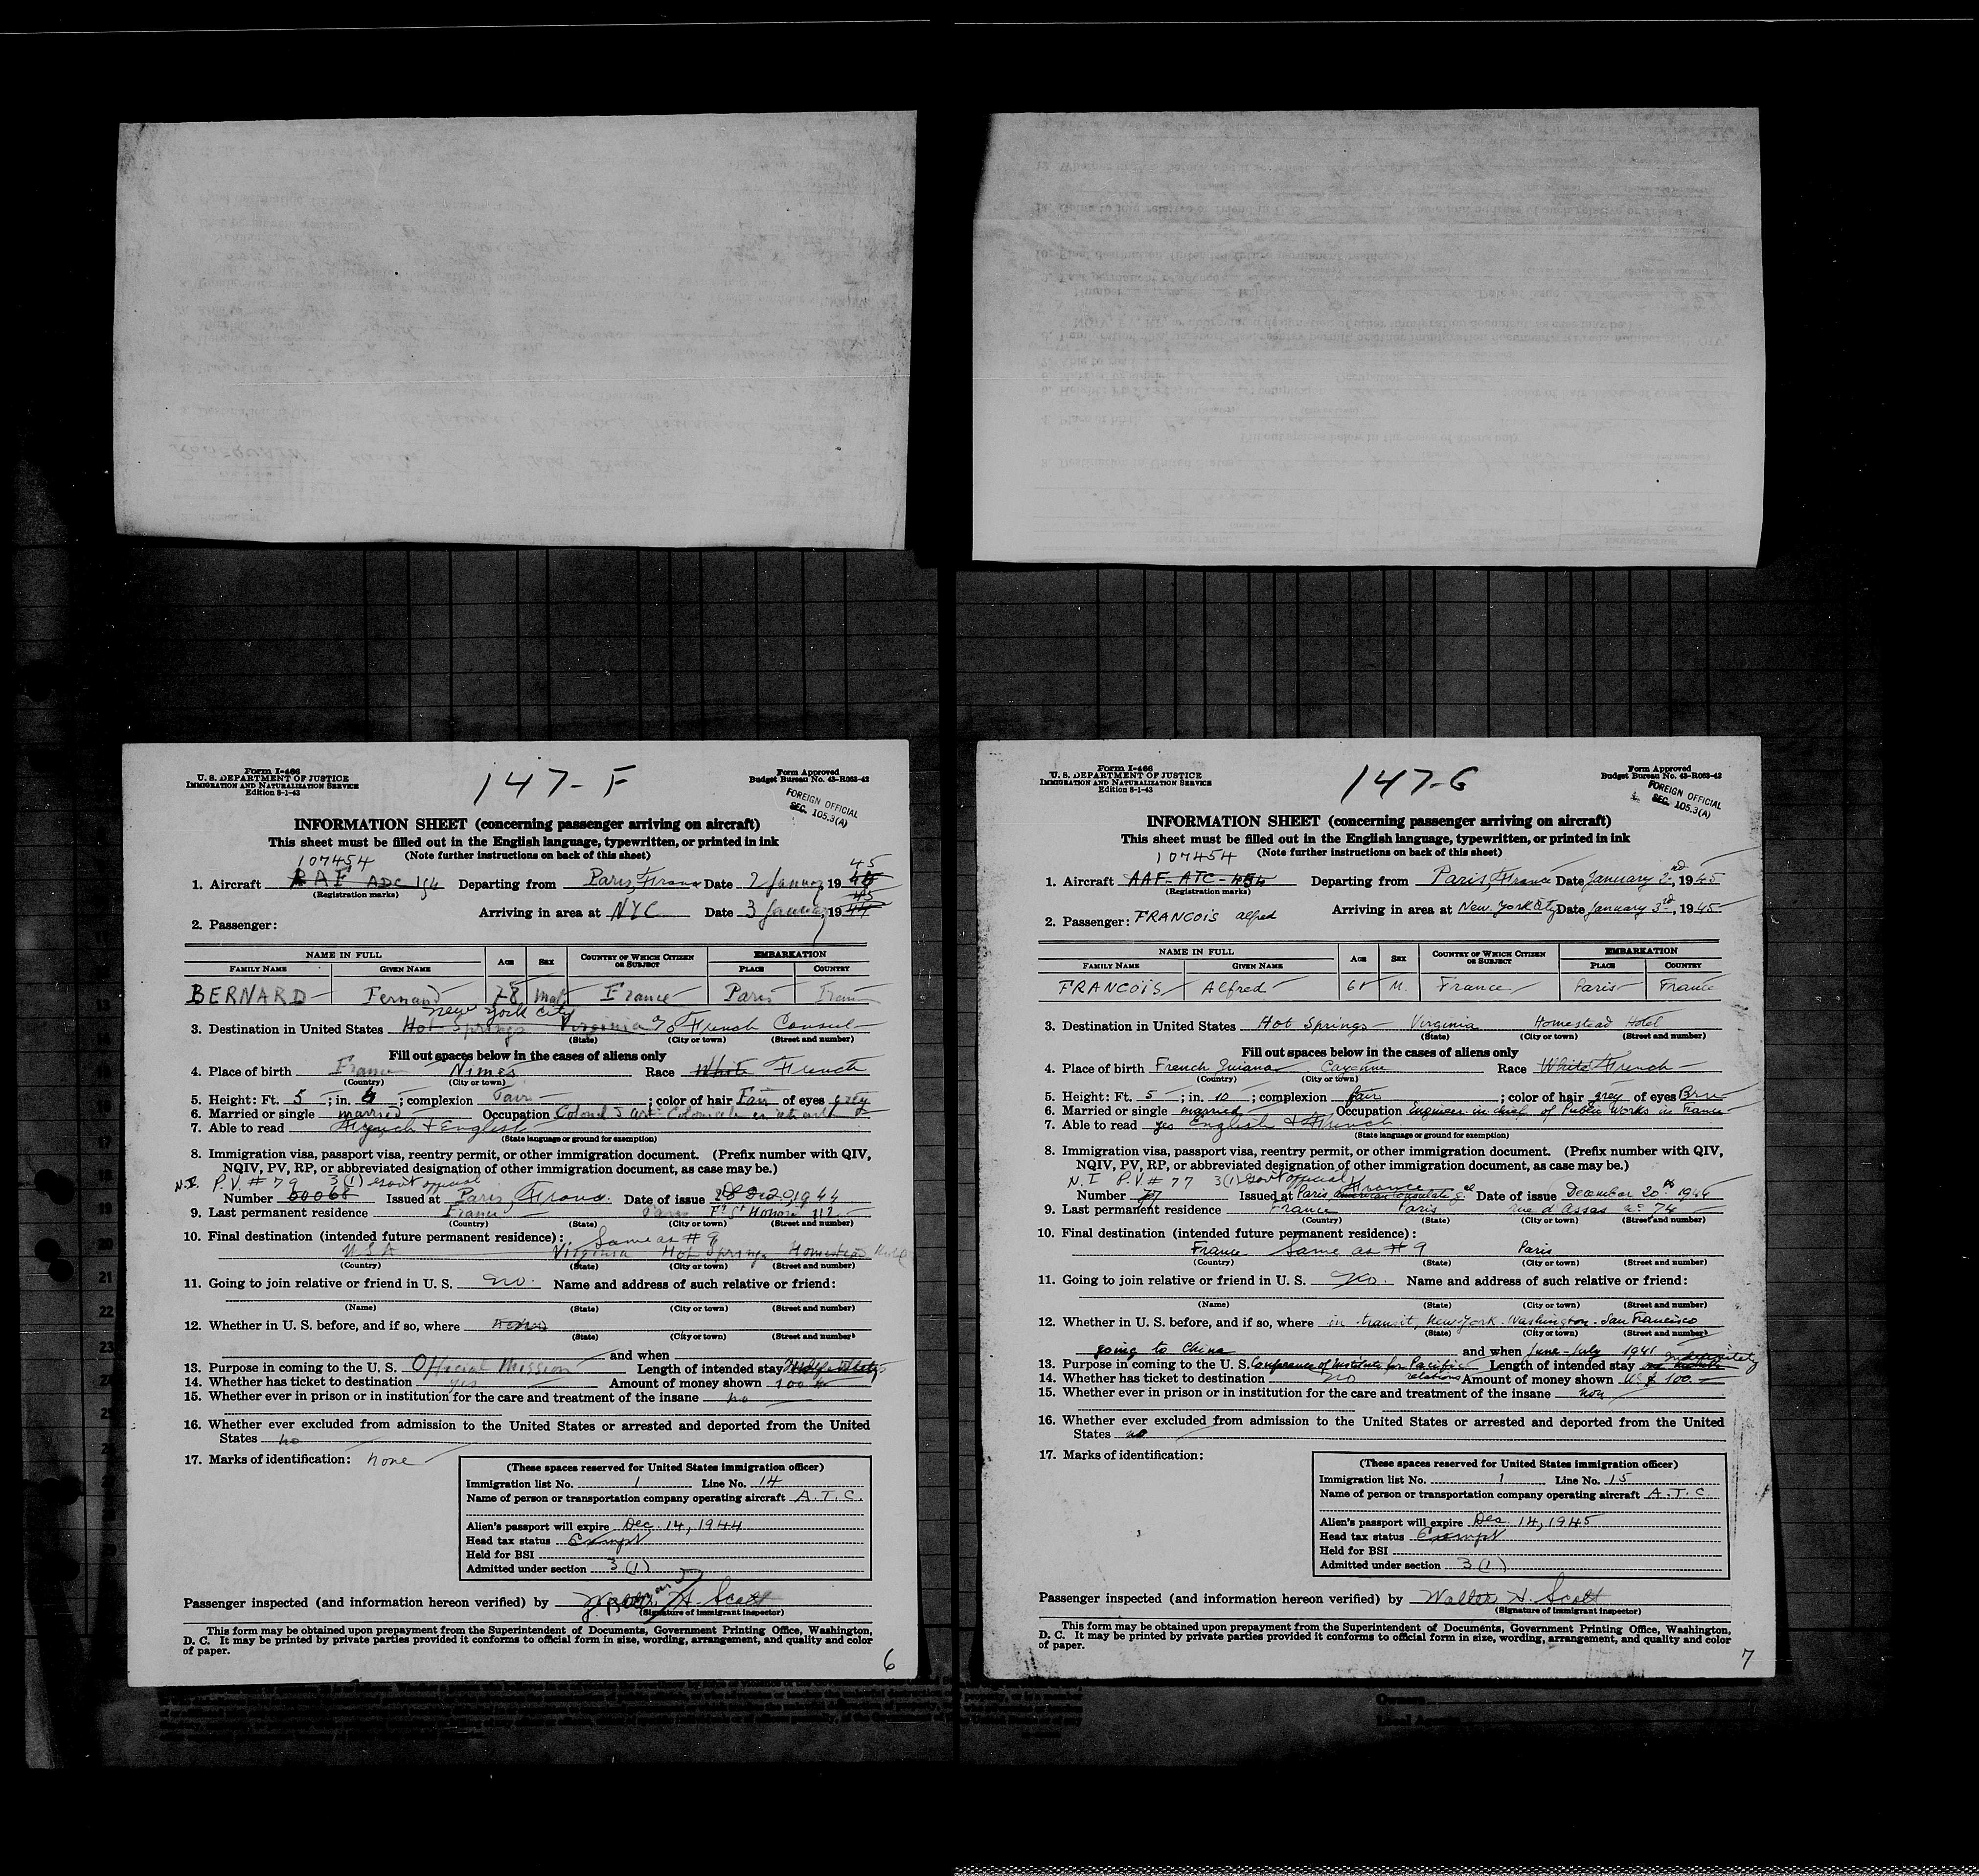 Form I-466
U. S. DEPARTMENT OF JUSTICE
IMMIGRATION AND NATURALIZATION SERVICE
Edition 8-1-43
147-F
Form Approved
Budget Bureau No. 43-R063-42
FOREIGN OFFICIAL
SEC. 105.3(A)
INFORMATION SHEET (concerning passenger arriving on aircraft)
This sheet must be filled out in the English language, typewritten, or printed in ink
(Note further instructions on back of this sheet)
107454
45
1. Aircraft AAF ADC 154 Departing from Paris, France Date 2 January 19
(Registration marks)
45
Arriving in area at NYC Date 3 January 1944
2. Passenger:
NAME IN FULL AGE SEX COUNTRY OF WHICH CITIZEN OR SUBJECT EMBARKATION
FAMILY NAME GIVEN NAME PLACE COUNTRY
BERNARD Fernand 78 Male France Paris France
New York City
3. Destination in United States Hot Springs Virginia c/o French Consul
(State) (City or town) (Street and number)
Fill out spaces below in the cases of aliens only
4. Place of birth France Nimes Race White French
(Country) (City or town)
5. Height: Ft. 5; in. 6; complexion Fair; color of hair Fair of eyes grey
6. Married or single married Occupation Colonel
7. Able to read French & English
(State language or ground for exemption)
8. Immigration visa, passport visa, reentry permit, or other immigration document. (Prefix number with QIV,
NQIV, PV, RP, or abbreviated designation of other immigration document, as case may be.)
N.I. P.V. # 79 3(1) Govt official
Number 60068 Issued at Paris, France Date of issue Dec 20, 1944
9. Last permanent residence France Paris Fg St Honoré 112
(Country) (State) (City or town) (Street and number)
10. Final destination (intended future permanent residence): Same as # 9
USA Virginia Hot Springs Homestead Hotel
(Country) (State) (City or town) (Street and number)
11. Going to join relative or friend in U. S. no. Name and address of such relative or friend:
(Name) (State) (City or town) (Street and number)
12. Whether in U. S. before, and if so, where
(State) (City or town) (Street and number)
and when
13. Purpose in coming to the U. S. Official Mission Length of intended stay Indefinitely
14. Whether has ticket to destination yes Amount of money shown 100 $
15. Whether ever in prison or in institution for the care and treatment of the insane no
16. Whether ever excluded from admission to the United States or arrested and deported from the United
States no
17. Marks of identification: none
(These spaces reserved for United States immigration officer)
Immigration list No. 1 Line No. 14
Name of person or transportation company operating aircraft A.T.C.
Alien's passport will expire Dec. 14, 1944
Head tax status Exempt
Held for BSI
Admitted under section 3(1)
Passenger inspected (and information hereon verified) by Walter H. Scott
(Signature of immigrant inspector)
This form may be obtained upon prepayment from the Superintendent of Documents, Government Printing Office, Washington,
D. C. It may be printed by private parties provided it conforms to official form in size, wording, arrangement, and quality and color
of paper.
6
Form I-466
U. S. DEPARTMENT OF JUSTICE
IMMIGRATION AND NATURALIZATION SERVICE
Edition 8-1-43
147-G
Form Approved
Budget Bureau No. 43-R063-42
FOREIGN OFFICIAL
SEC. 105.3(A)
INFORMATION SHEET (concerning passenger arriving on aircraft)
This sheet must be filled out in the English language, typewritten, or printed in ink
107454 (Note further instructions on back of this sheet)
1. Aircraft AAF-ATC-454 Departing from Paris, France Date January 2nd, 1945
(Registration marks)
Arriving in area at New York City Date January 3rd, 1945
2. Passenger: FRANCOIS Alfred
NAME IN FULL AGE SEX COUNTRY OF WHICH CITIZEN OR SUBJECT EMBARKATION
FAMILY NAME GIVEN NAME PLACE COUNTRY
FRANCOIS Alfred 61 M. France Paris France
3. Destination in United States Hot Springs Virginia Homestead Hotel
(State) (City or town) (Street and number)
Fill out spaces below in the cases of aliens only
4. Place of birth French Guiana Cayenne Race White French
(Country) (City or town)
5. Height: Ft. 5; in. 10; complexion fair; color of hair grey of eyes
6. Married or single married Occupation Engineer in chief of Public Works in France
7. Able to read yes English & French
(State language or ground for exemption)
8. Immigration visa, passport visa, reentry permit, or other immigration document. (Prefix number with QIV,
NQIV, PV, RP, or abbreviated designation of other immigration document, as case may be.)
N.I P.V. # 77 3(1) Govt official France
Number 77 Issued at Paris American Consulate Date of issue December 20th 1944
9. Last permanent residence France Paris rue d'Assas n° 74
(Country) (State) (City or town) (Street and number)
10. Final destination (intended future permanent residence):
France Same as # 9 Paris
(Country) (State) (City or town) (Street and number)
11. Going to join relative or friend in U. S. No. Name and address of such relative or friend:
(Name) (State) (City or town) (Street and number)
12. Whether in U. S. before, and if so, where in transit, New-York. Washington. San Francisco
(State) (City or town) (Street and number)
going to China and when June-July 1941
Indefinitely
13. Purpose in coming to the U. S. Conference of Institute for Pacific Length of intended stay
14. Whether has ticket to destination NO relations Amount of money shown US $ 100.-
15. Whether ever in prison or in institution for the care and treatment of the insane non
16. Whether ever excluded from admission to the United States or arrested and deported from the United
States no
17. Marks of identification:
(These spaces reserved for United States immigration officer)
Immigration list No. 1 Line No. 15
Name of person or transportation company operating aircraft A.T.C.
Alien's passport will expire Dec. 14, 1945
Head tax status Exempt
Held for BSI
Admitted under section 3(1)
Passenger inspected (and information hereon verified) by Walter H. Scott
(Signature of immigrant inspector)
This form may be obtained upon prepayment from the Superintendent of Documents, Government Printing Office, Washington,
D. C. It may be printed by private parties provided it conforms to official form in size, wording, arrangement, and quality and color
of paper.
7
Owners